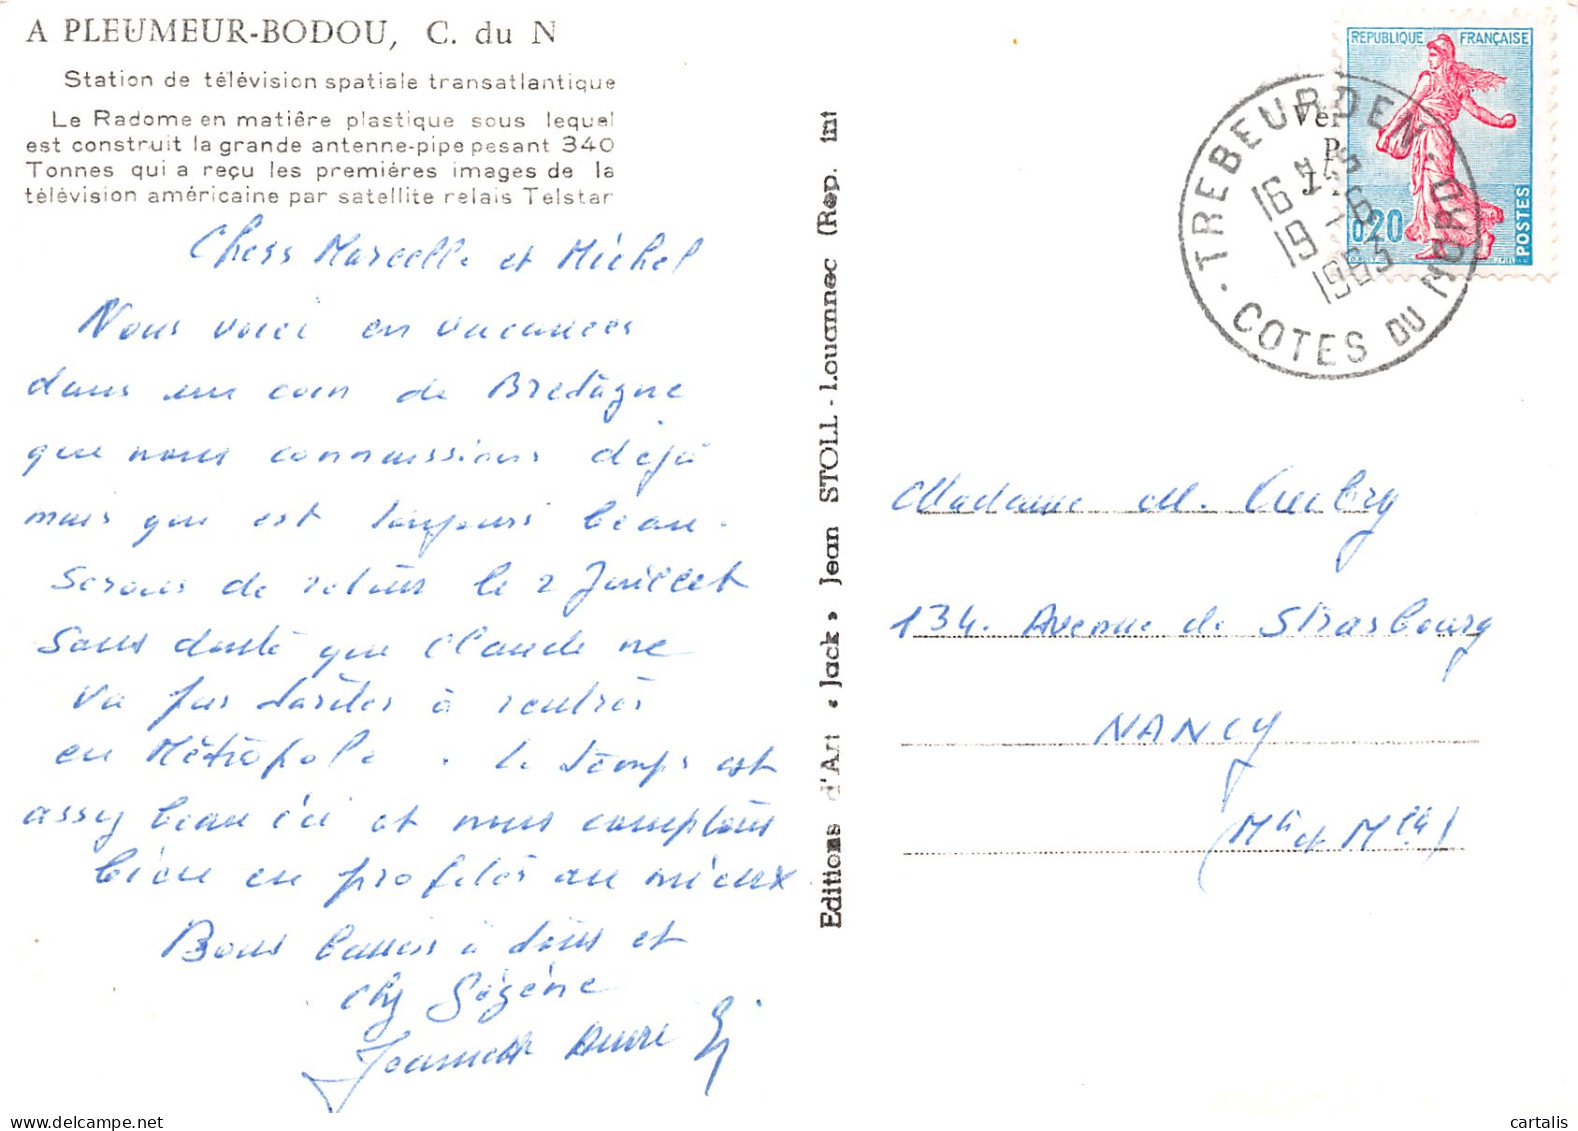 A PLEUMEUR-BODOU, C. du N
Station de télévision spatiale transatlantique
Le Radome en matière plastique sous lequel
est construit la grande antenne-pipe pesant 340
Tonnes qui a reçu les premiéres images de la
télévision américaine par satellite relais Telstar
Chers Marcelle et Michel
Nous voici en vacances
dans un coin de Bretagne
que nous connaissions déjà
mais que est toujours beau.
Serons de retour le 2 Juillet
Sans doute que Claude ne
va pas tarder à rentrer
en Métropole. Le temps est
assez beau ici et nous comptons
bien en profiter au mieux
Bons baisers à tous et
chez
Editions d'Art « Jack » Jean STOLL - Louannec (Rep. int
REPUBLIQUE FRANÇAISE
0,20
POSTES
TREBEURDEN
16 H 45
19 - 6
1963
COTES DU NORD
Madame M. Aubry
134. Avenue de Strasbourg
NANCY
(Mthe et Mlle)
cartalis
delcampe.net